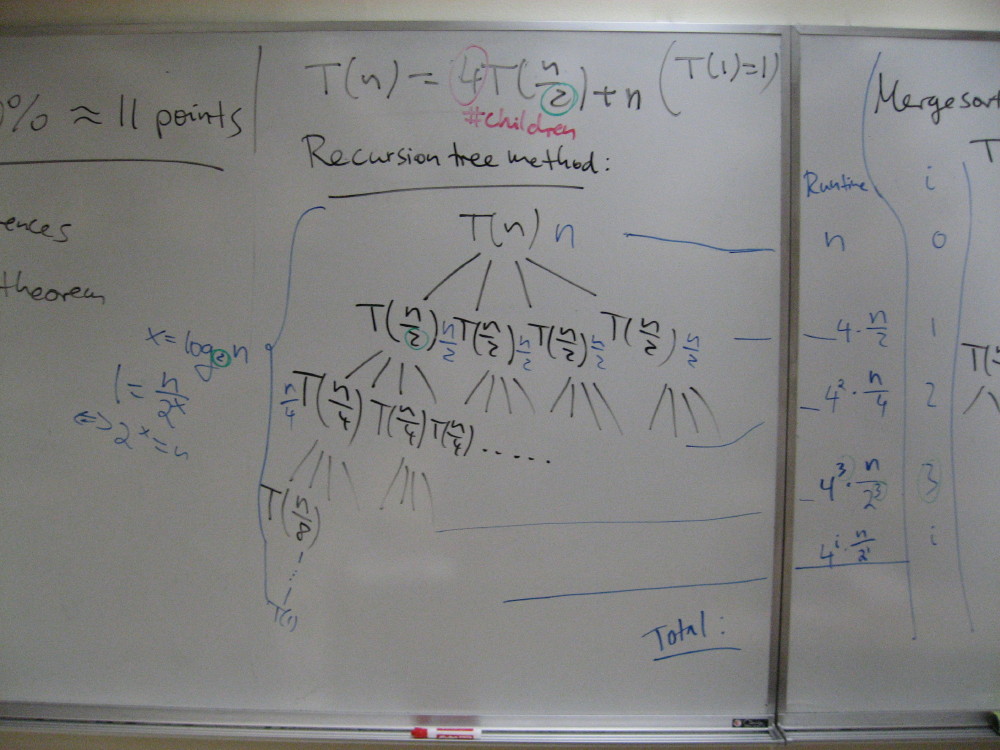 0% ≈ 11 points
ences
theorem
T(n) = 4T(n/2) + n (T(1)=1)
#children
Recursion tree method:
T(n) n
T(n/2) n/2 T(n/2) n/2 T(n/2) n/2 T(n/2) n/2
n/4 T(n/4) T(n/4) T(n/4) .....
T(n/8)
T(1)
x = log₂n
1 = n/2^x
⇔ 2^x = n
Total:
Mergesort
T
Runtime i
n 0
4·n/2 1
4²·n/4 2
4³·n/2³ 3
4^i·n/2^i i